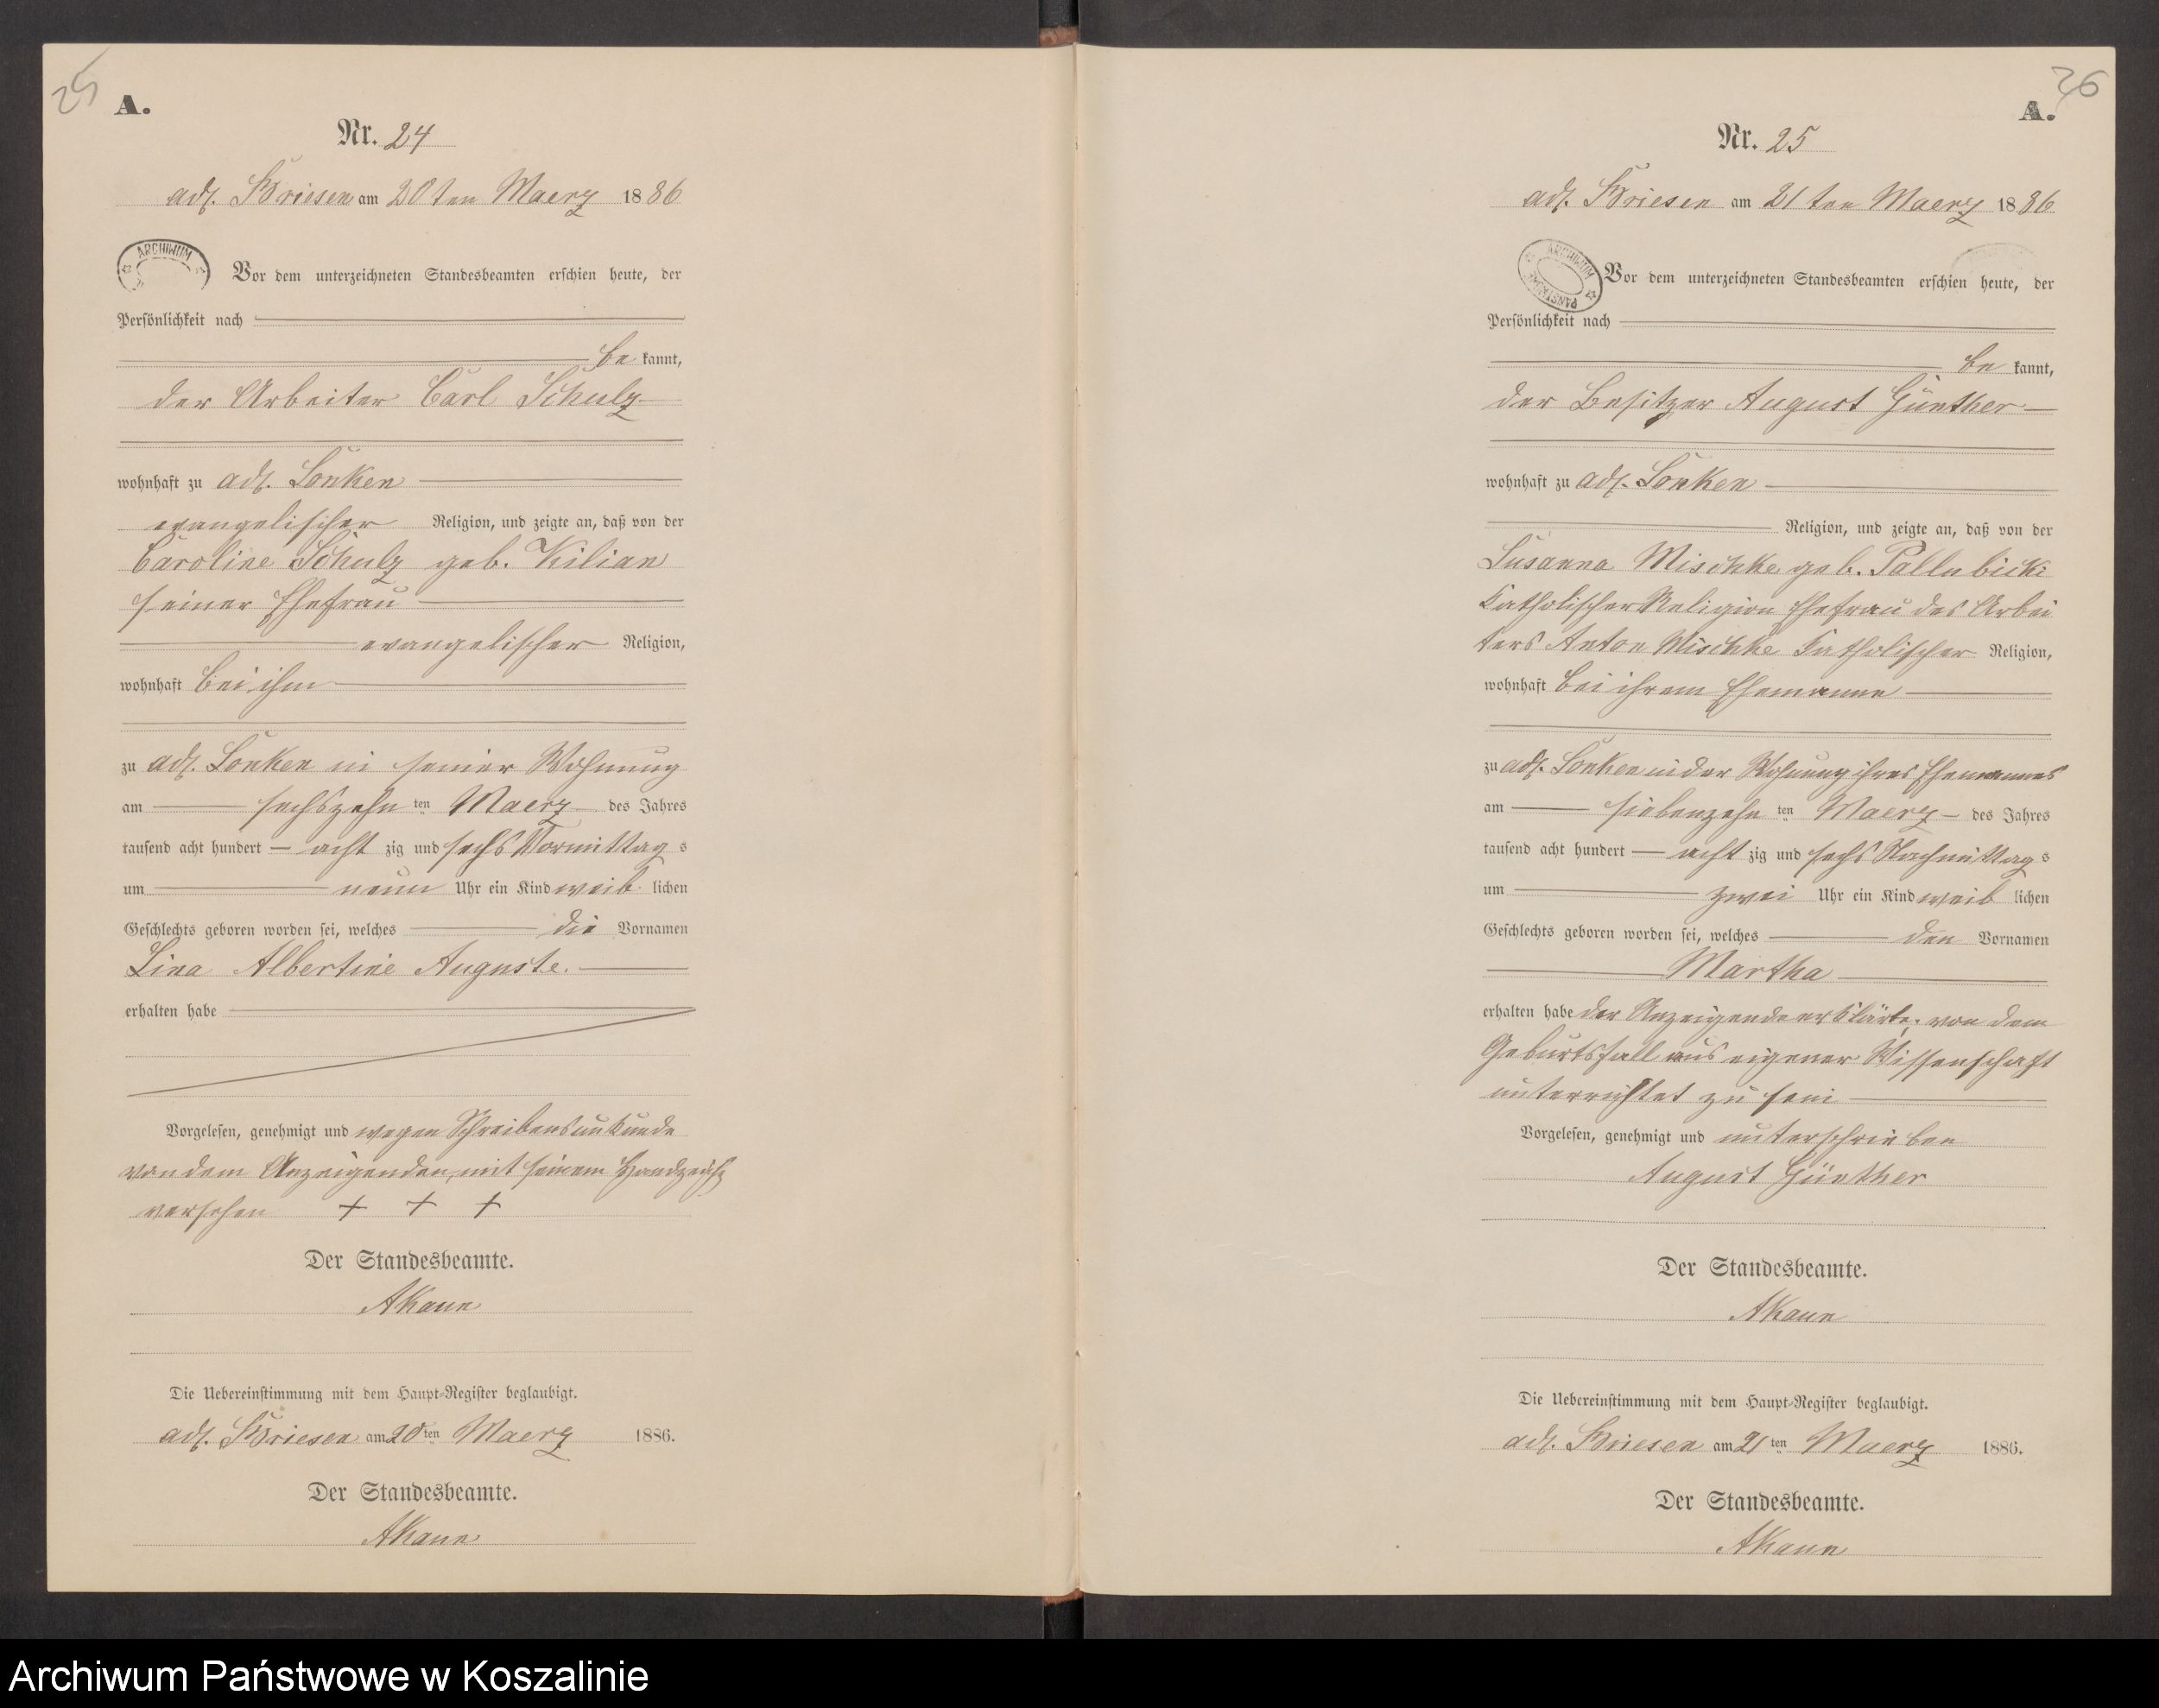 25
A.
Nr. 24
adl. Briesen am 20ten Maerz 1886
ARCHIWUM
Vor dem unterzeichneten Standesbeamten erschien heute, der
Persönlichkeit nach
be kannt,
der Arbeiter Carl Schulz
wohnhaft zu adl. Lonken
evangelischer Religion, und zeigte an, daß von der
Caroline Schulz geb. Kilian
seiner Ehefrau
evangelischer Religion,
wohnhaft bei ihm
zu adl. Lonken in seiner Wohnung
am sechszehn ten Maerz des Jahres
tausend acht hundert acht zig und sechs Vormittag s
um neun Uhr ein Kind weib lichen
Geschlechts geboren worden sei, welches die Vornamen
Lina Albertine Auguste.
erhalten habe
Vorgelesen, genehmigt und wegen Schreibensunkunde
von dem Anzeigenden, mit seinem Handzeich
versehen + + +
Der Standesbeamte.
AKaun
Die Uebereinstimmung mit dem Haupt-Register beglaubigt.
adl. Briesen am 20 ten Maerz 1886.
Der Standesbeamte.
AKaun
26
A.
Nr. 25
adl. Briesen am 21 ten Maerz 1886
ARCHIWUM
Vor dem unterzeichneten Standesbeamten erschien heute, der
Persönlichkeit nach
be kannt,
der Besitzer August Günther
wohnhaft zu adl. Lonken
Religion, und zeigte an, daß von der
Susanna Mischke geb. Pallubicki
katholischer Religion Ehefrau des Arbei
ters Anton Mischke katholischer Religion,
wohnhaft bei ihrem Ehemanne
zu adl. Lonken in der Wohnung ihres Ehemannes
am siebenzehn ten Maerz des Jahres
tausend acht hundert acht zig und sechs Nachmittag s
um zwei Uhr ein Kind weib lichen
Geschlechts geboren worden sei, welches den Vornamen
Martha
erhalten habe der Anzeigende erklärte, von dem
Geburtsfall aus eigener Wissenschaft
unterrichtet zu sein
Vorgelesen, genehmigt und unterschrieben
August Günther
Der Standesbeamte.
AKaun
Die Uebereinstimmung mit dem Haupt-Register beglaubigt.
adl. Briesen am 21 ten Maerz 1886.
Der Standesbeamte.
AKaun
Archiwum Państwowe w Koszalinie